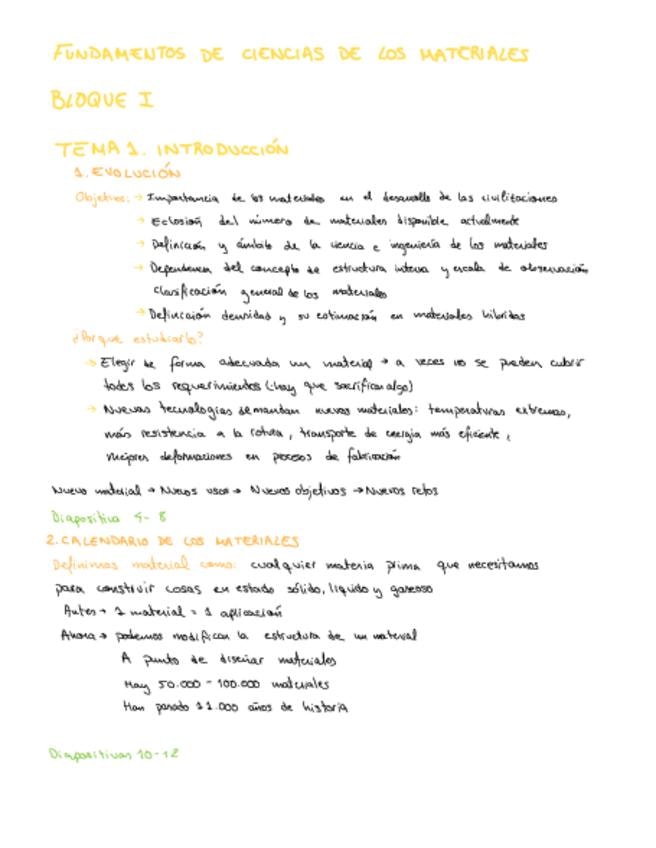 FUNDAMENTOS DE CIENCIAS DE LOS MATERIALES
BLOQUE I
TEMA 1. INTRODUCCIÓN
1. EVOLUCIÓN
Objetivos: → Importancia de los materiales en el desarrollo de las civilizaciones
→ Eclosión del número de materiales disponible actualmente
→ Definición y ámbito de la ciencia e ingeniería de los materiales
→ Dependencia del concepto de estructura interna y escala de observación
clasificación general de los materiales
→ Definición densidad y su estimación en materiales híbridos
¿Por que estudiarlo?
→ Elegir de forma adecuada un material → a veces no se pueden cubrir
todos los requerimientos (hay que sacrificar algo)
→ Nuevas tecnologías demandan nuevos materiales: temperaturas extremas,
más resistencia a la rotura, transporte de energía más eficiente,
mejores deformaciones en procesos de fabricación
Nuevo material → Nuevos usos → Nuevos objetivos → Nuevos retos
Diapositiva 5-8
2. CALENDARIO DE LOS MATERIALES
Definimos material como: cualquier materia prima que necesitamos
para construir cosas en estado sólido, líquido y gaseoso
Antes → 1 material = 1 aplicación
Ahora → podemos modificar la estructura de un material
A punto de diseñar materiales
Hay 50.000 - 100.000 materiales
Han pasado 11.000 años de historia
Diapositivas 10-12